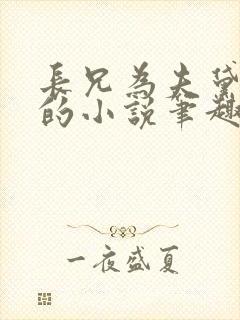 長兄為夫黛
的小說筆趣
一夜盛夏